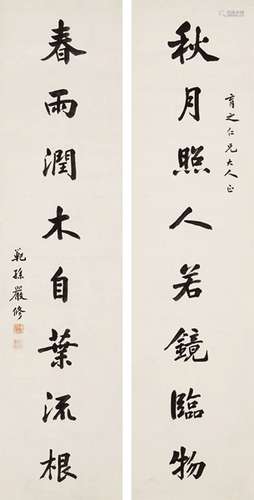 秋月照人若鏡臨物
育之仁兄大人正
春雨潤木自葉流根
範孫嚴修